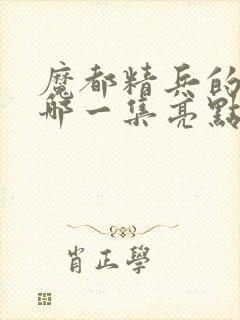 魔都精兵的
哪一集亮點
肖正學